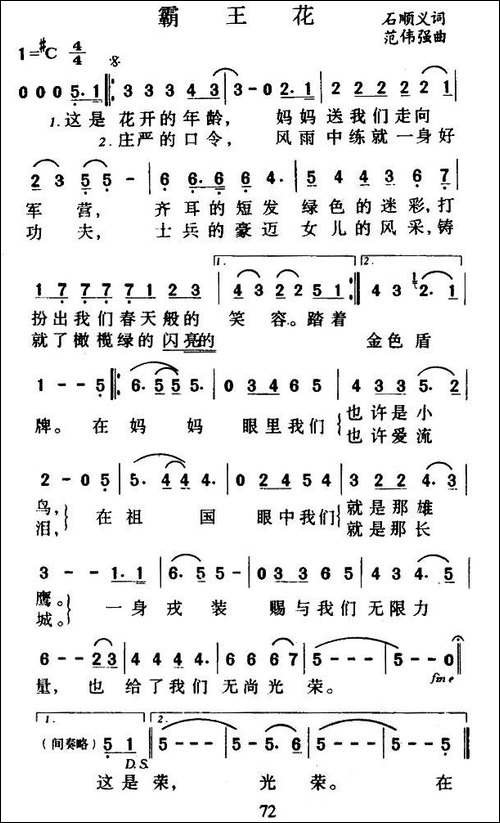 霸王花
石顺义词
范伟强曲
1=#C 4/4
0 0 0 5·1 3 3 3 4 3 3-0 2·1 2 2 2 2 2 2 1
1.这是 花开的年龄, 妈妈 送我们走向
2.庄严的口令, 风雨中练就一身好
2 3 5 5- 6 6·6 6 4· 5 4 4 3 6 7
军营, 齐耳的短发 绿色的迷彩,打
功夫, 士兵的豪迈 女儿的风采,铸
1 7 7 7 7 1 2 3 4 3 2 2 5 1 4 3 2·1
1. 2.
扮出我们春天般的 笑容。踏着
就了橄榄绿的闪亮的 金色盾
1 - - 5 6·5 5 5· 0 3 4 6 5 4 3 3 5·2
牌。在妈妈 眼里我们 也许是小
也许爱流
2-0 5 5·4 4 4· 0 2 4 5 4 3 2 2 4·3
鸟, 在祖国 眼中我们 就是那雄
泪, 就是那长
3 - - 1·1 6·5 5- 0 3 3 6 5 4 3 4·5
鹰。 一身戎装 赐与我们无限力
城。
6 - - 2 3 4 4 4 4· 6 6 6 7 5 - - - 5 - - 0
fine
量, 也给了我们无尚光荣。
1. 2.
(间奏略) 5 1 5 - - - 5 - - 5 5 - 5·6 5 - - 5
D.S.
这是荣, 光荣。 在
72